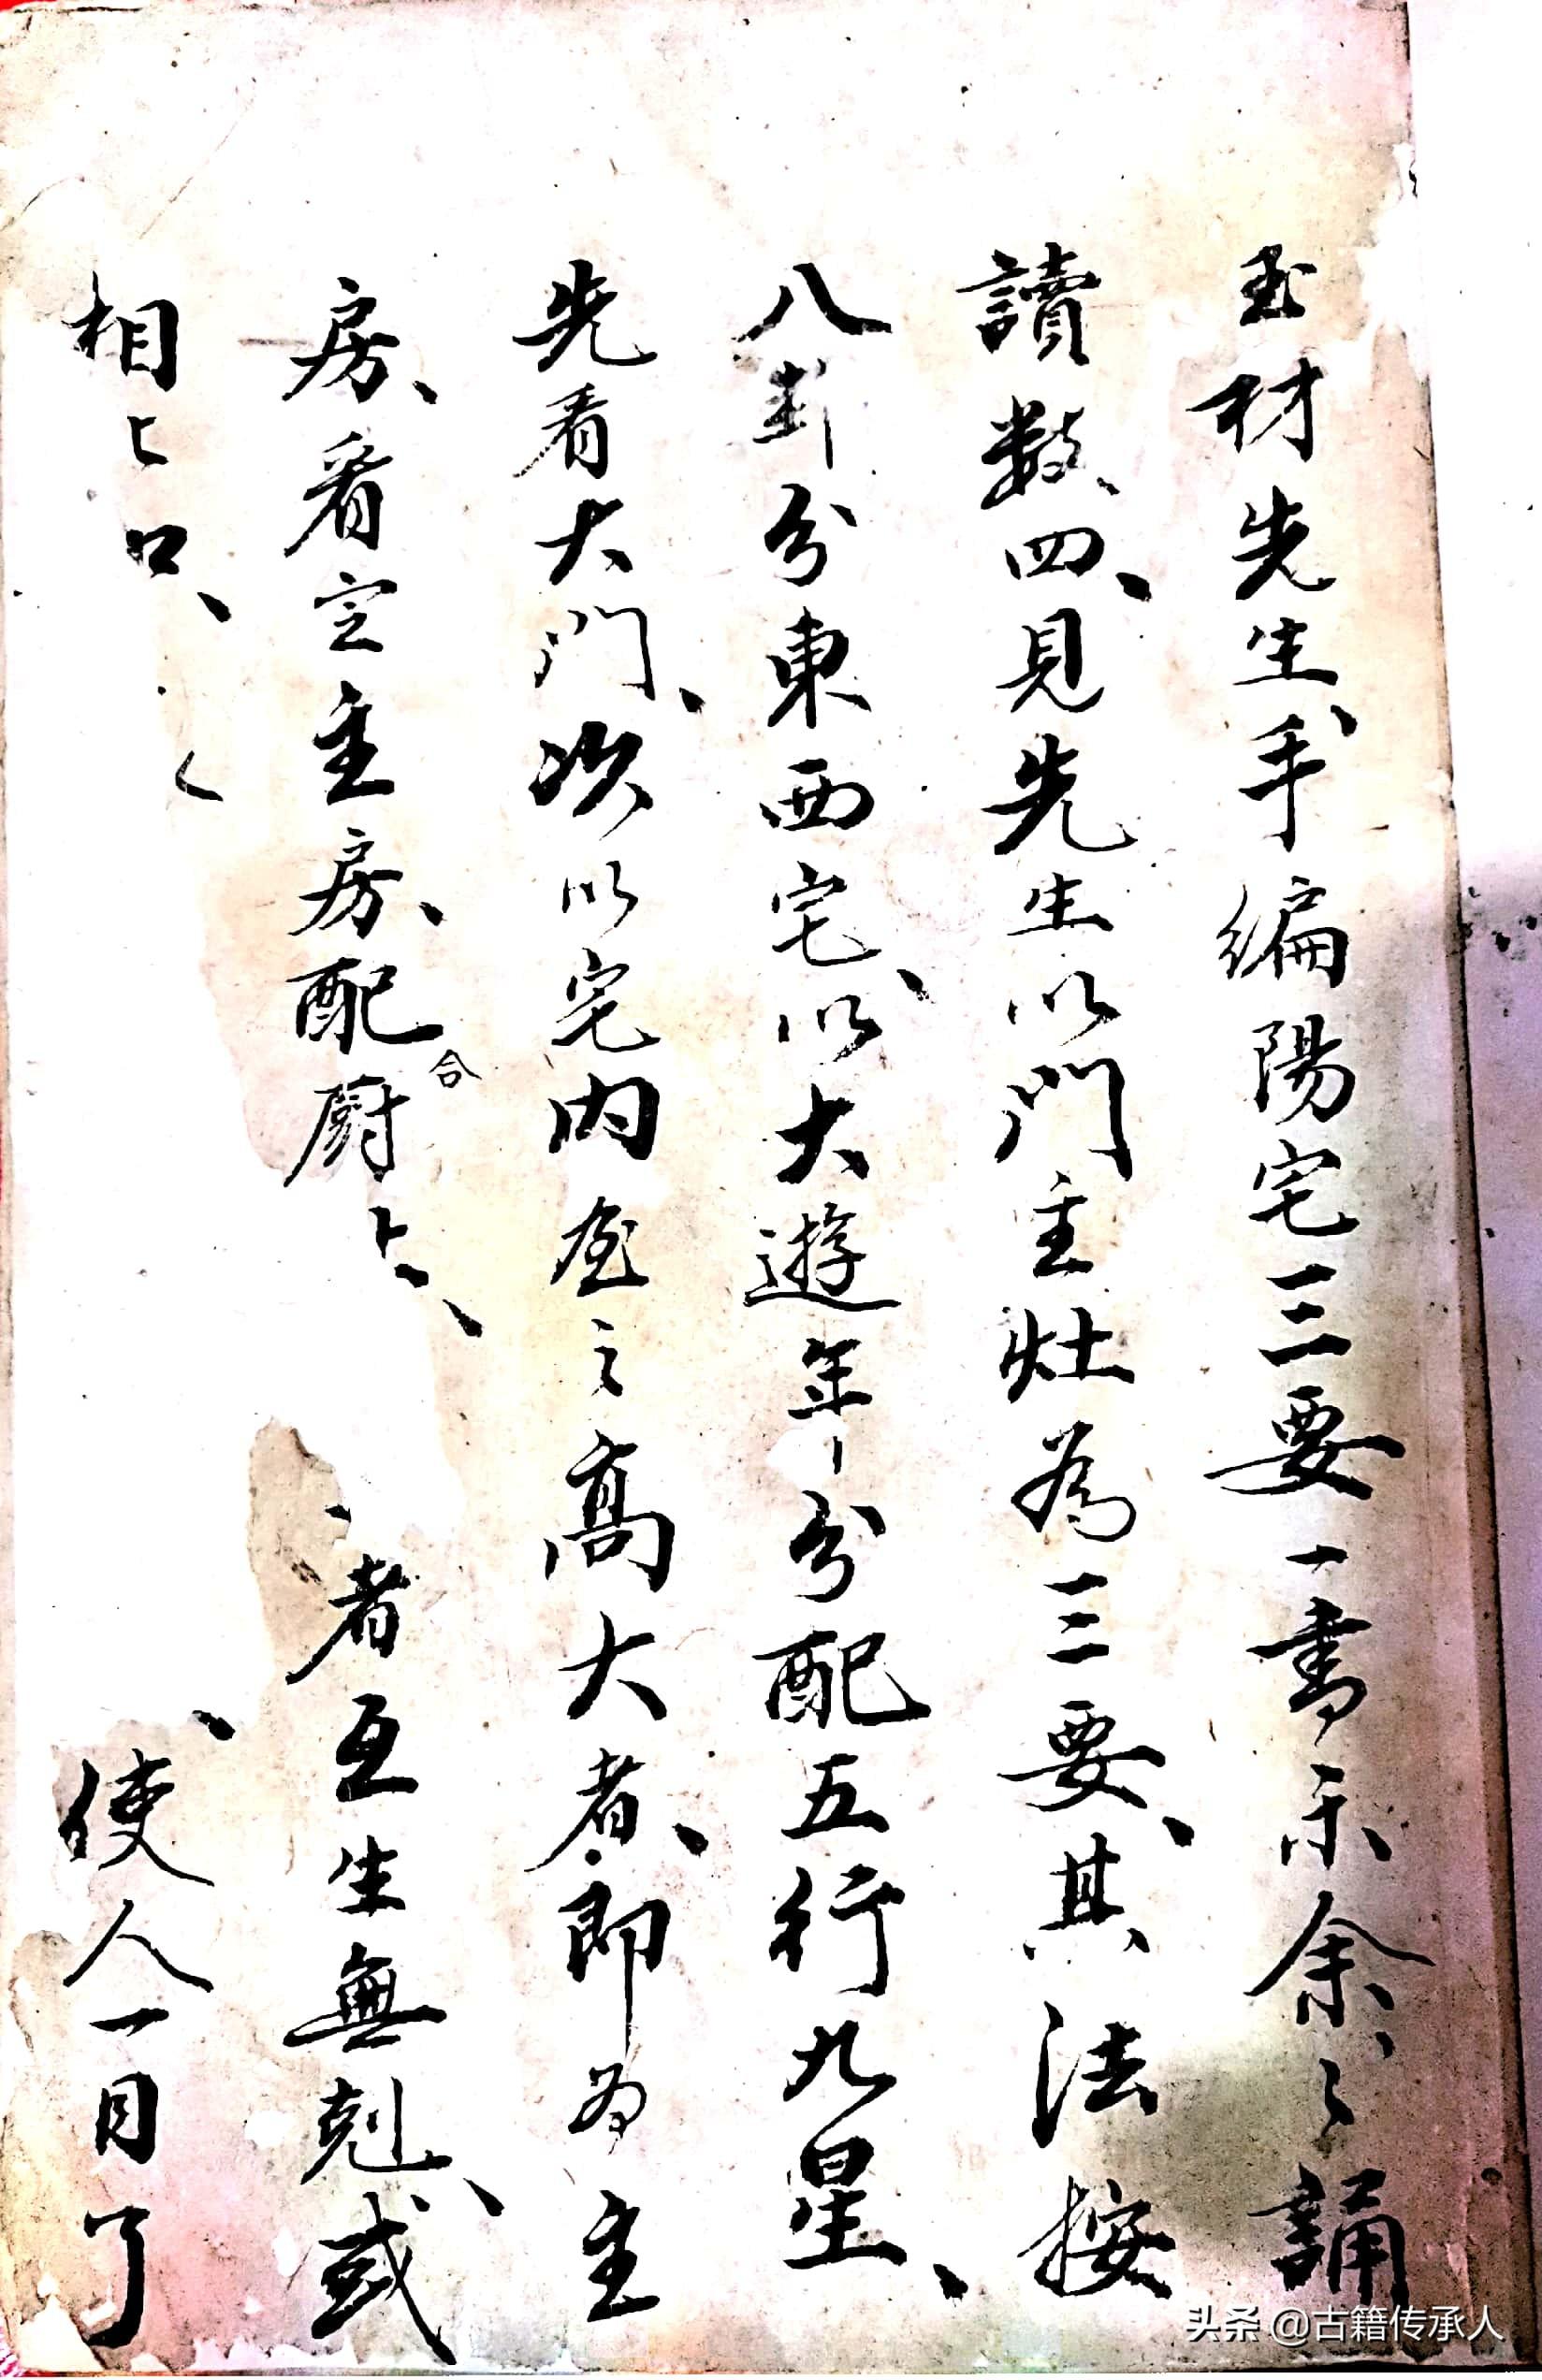 玉材先生手編陽宅三要一書示余々誦
讀数四見先生以門主灶為三要其法按
八卦分東西宅以大遊年分配五行九星
先看大門次以宅内房之高大者即為主
房看定主房配合厨
者互生無剋或
相
使人一目了
头条 @古籍传承人